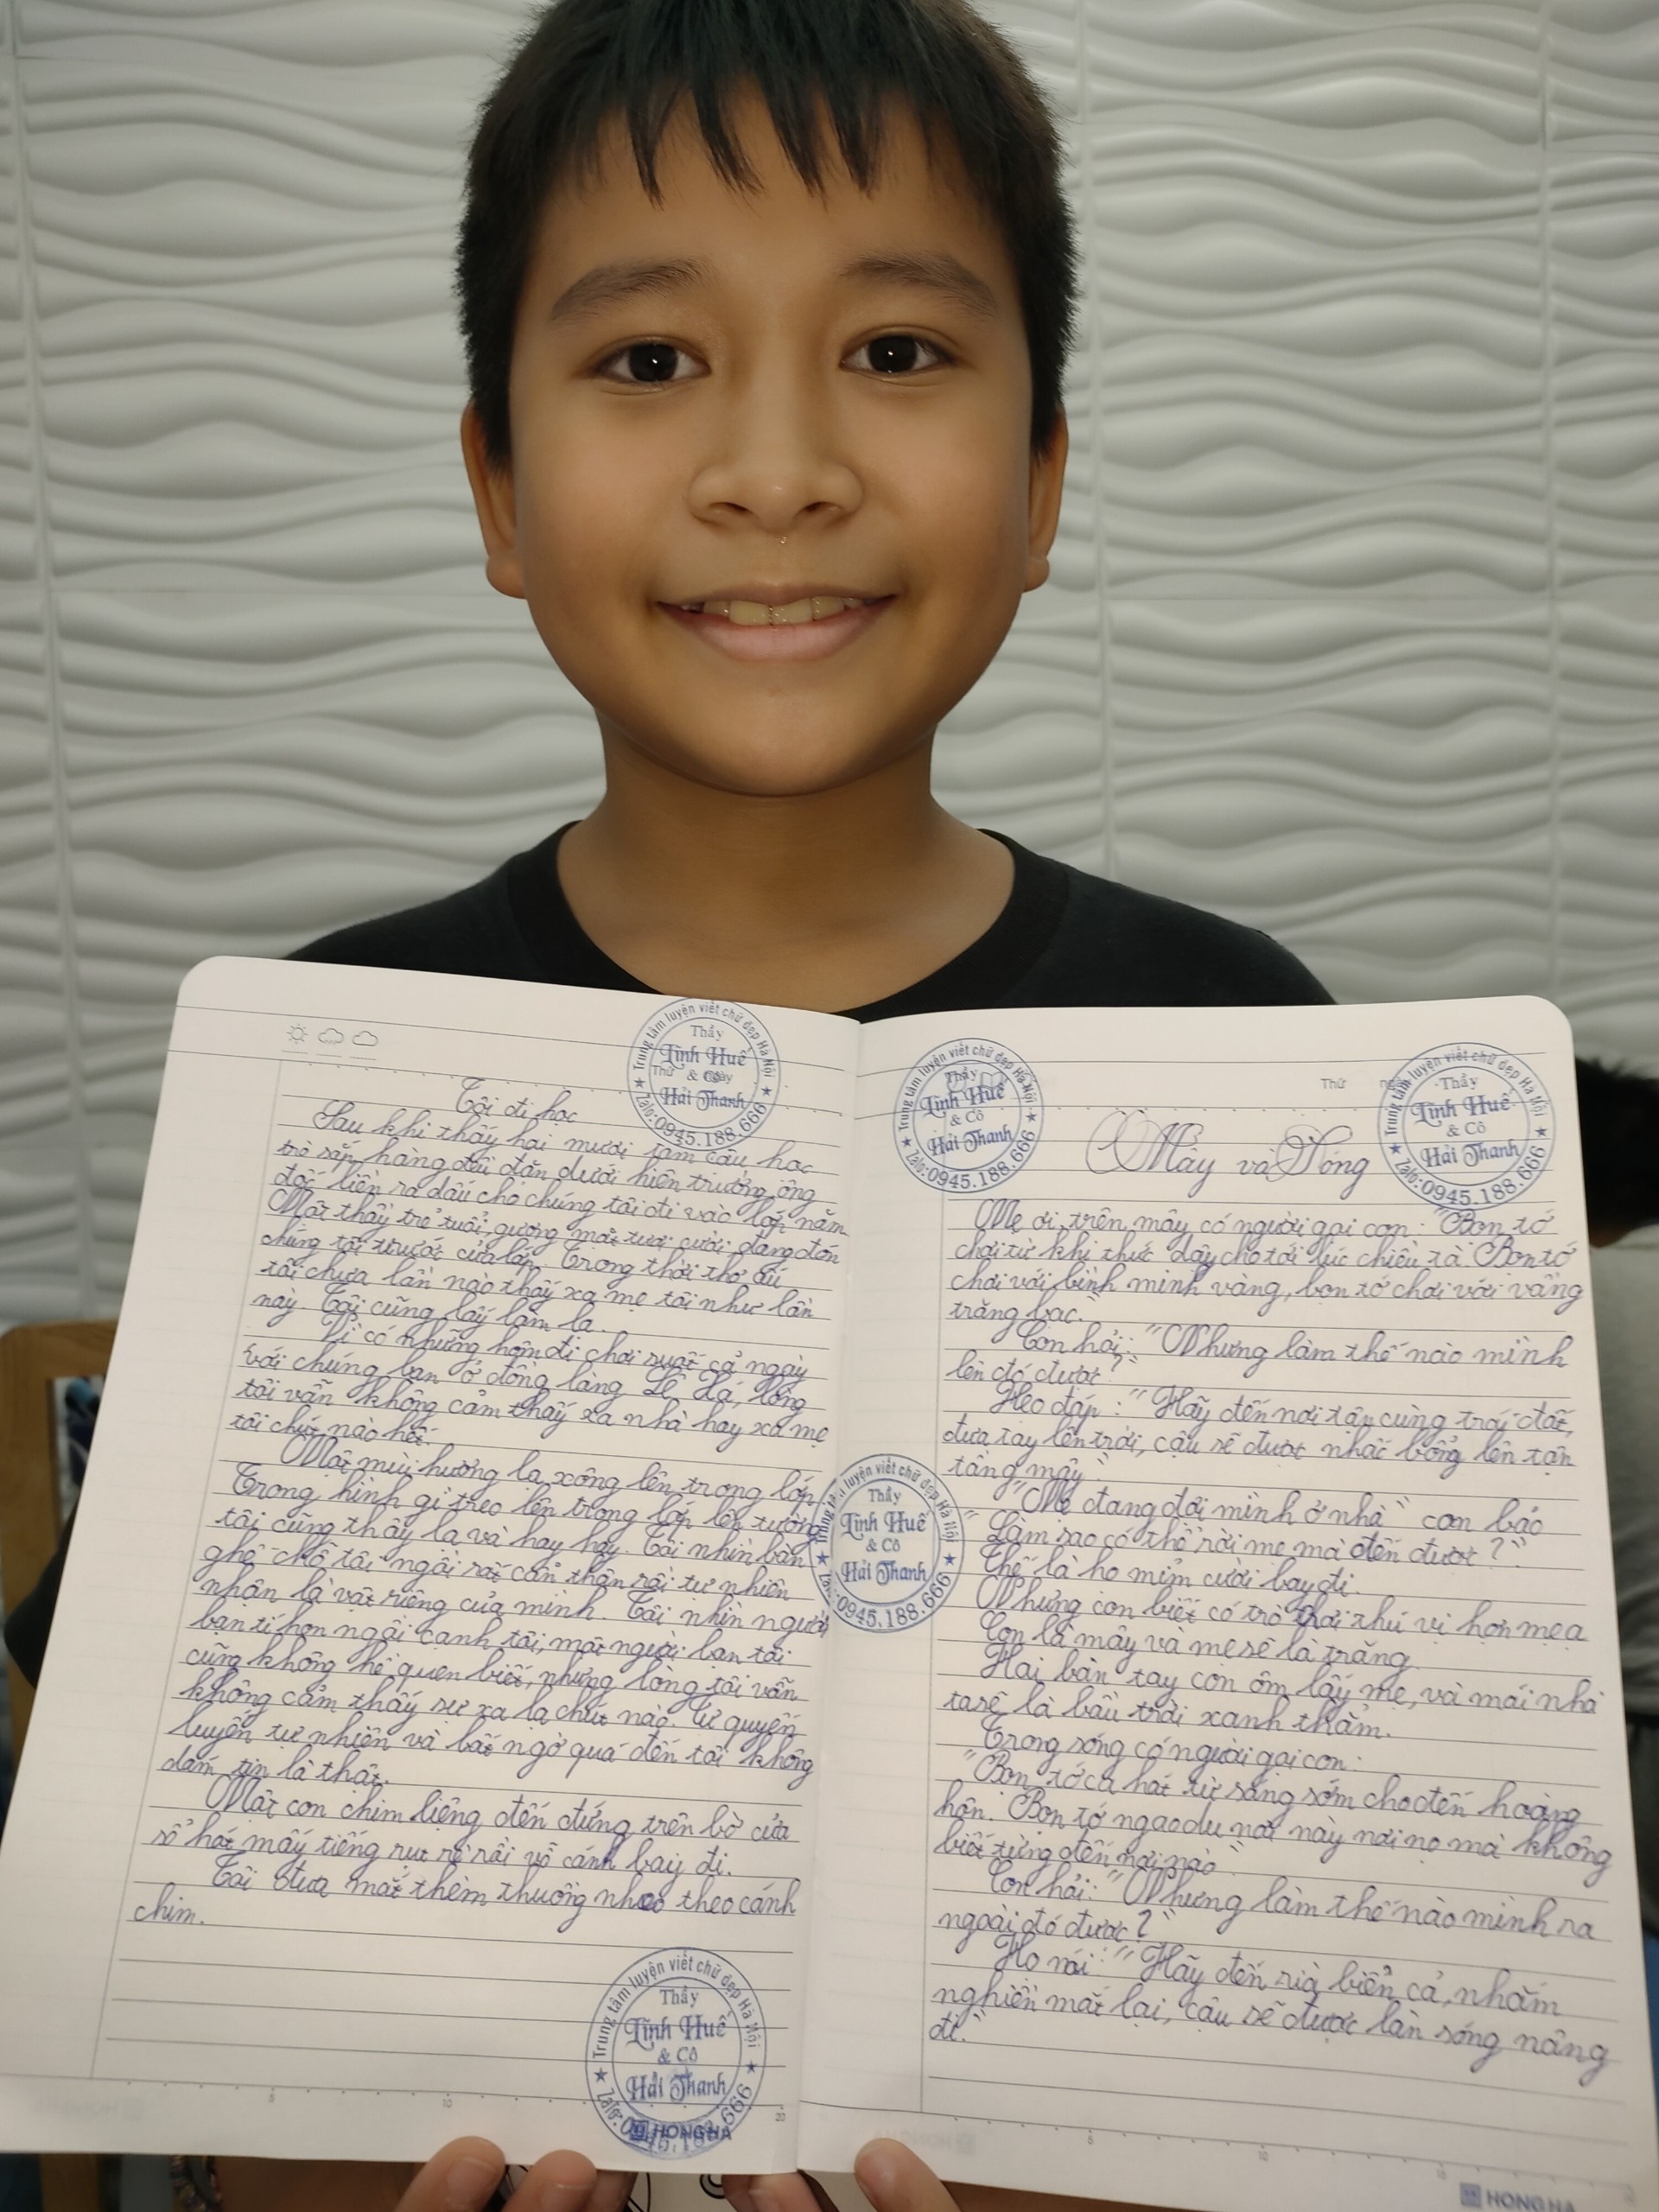 Trung tâm luyện viết chữ đẹp Hà Nội
Thầy
Lĩnh Huế
& Cô
Hải Thanh
Zalo: 0945.188.666
Tôi đi học
Sau khi thấy hai mươi tám cậu học
trò sắp hàng đều đặn dưới hiên trường, ông
đốc liền ra dấu cho chúng tôi đi vào lớp năm.
Một thầy trẻ tuổi, gương mặt tươi cười, đang đón
chúng tôi trước cửa lớp. Trong thời thơ ấu
tôi chưa lần nào thấy xa mẹ tôi như lần
này. Tôi cũng lấy làm lạ.
Vì có những hôm đi chơi suốt cả ngày
với chúng bạn ở đồng làng Lê Xá, lòng
tôi vẫn không cảm thấy xa nhà hay xa mẹ
tôi chút nào hết.
Một mùi hương lạ xông lên trong lớp
Trong hình gì treo lên trong lớp lên tường
tôi cũng thấy lạ và hay hay. Tôi nhìn bàn
ghế chỗ tôi ngồi rất cẩn thận rồi tự nhiên
nhận là vật riêng của mình. Tôi nhìn người
bạn tí hon ngồi cạnh tôi, một người bạn tôi
cũng không hề quen biết, nhưng lòng tôi vẫn
không cảm thấy sự xa lạ chút nào. Tự quyến
luyến tự nhiên và bất ngờ quá đến tôi không
dám tin là thật.
Một con chim liệng đến đứng trên bờ cửa
sổ hót mấy tiếng rụt rè rồi vỗ cánh bay đi.
Tôi đưa mắt thèm thuồng nheo theo cánh
chim.
Trung tâm luyện viết chữ đẹp Hà Nội
Thầy
Lĩnh Huế
& Cô
Hải Thanh
HONG HA
5
10
20
Trung tâm luyện viết chữ đẹp Hà Nội
Thầy
Lĩnh Huế
& Cô
Hải Thanh
Zalo: 0945.188.666
Thứ
Trung tâm luyện viết chữ đẹp Hà Nội
Thầy
Lĩnh Huế
& Cô
Hải Thanh
Zalo: 0945.188.666
Mây và Sóng
Mẹ ơi, trên mây có người gọi con: "Bọn tớ
chơi từ khi thức dậy cho tới lúc chiều tà. Bọn tớ
chơi với bình minh vàng, bọn tớ chơi với vầng
trăng bạc."
Con hỏi: "Nhưng làm thế nào mình
lên đó được?"
Heo đáp: "Hãy đến nơi tận cùng trái đất,
đưa tay lên trời, cậu sẽ được nhấc bổng lên tận
tầng mây."
"Mẹ đang đợi mình ở nhà" con bảo
"Làm sao có thể rời mẹ mà đến được?"
Thế là họ mỉm cười bay đi.
Nhưng con biết có trò chơi thú vị hơn mẹ ạ
Con là mây và mẹ sẽ là trăng
Hai bàn tay con ôm lấy mẹ, và mái nhà
ta sẽ là bầu trời xanh thẳm.
Trong sóng có người gọi con:
"Bọn tớ ca hát từ sáng sớm cho đến hoàng
hôn. Bọn tớ ngao du nơi này nơi nọ mà không
biết từng đến nơi nào"
Con hỏi: "Nhưng làm thế nào mình ra
ngoài đó được?"
Họ nói: "Hãy đến rìa biển cả, nhắm
nghiền mắt lại, cậu sẽ được làn sóng nâng
đi."
5
10
HONG HA
luyện viết chữ đẹp Hà Nội
Thầy
Lĩnh Huế
& Cô
Hải Thanh
0945.188.666